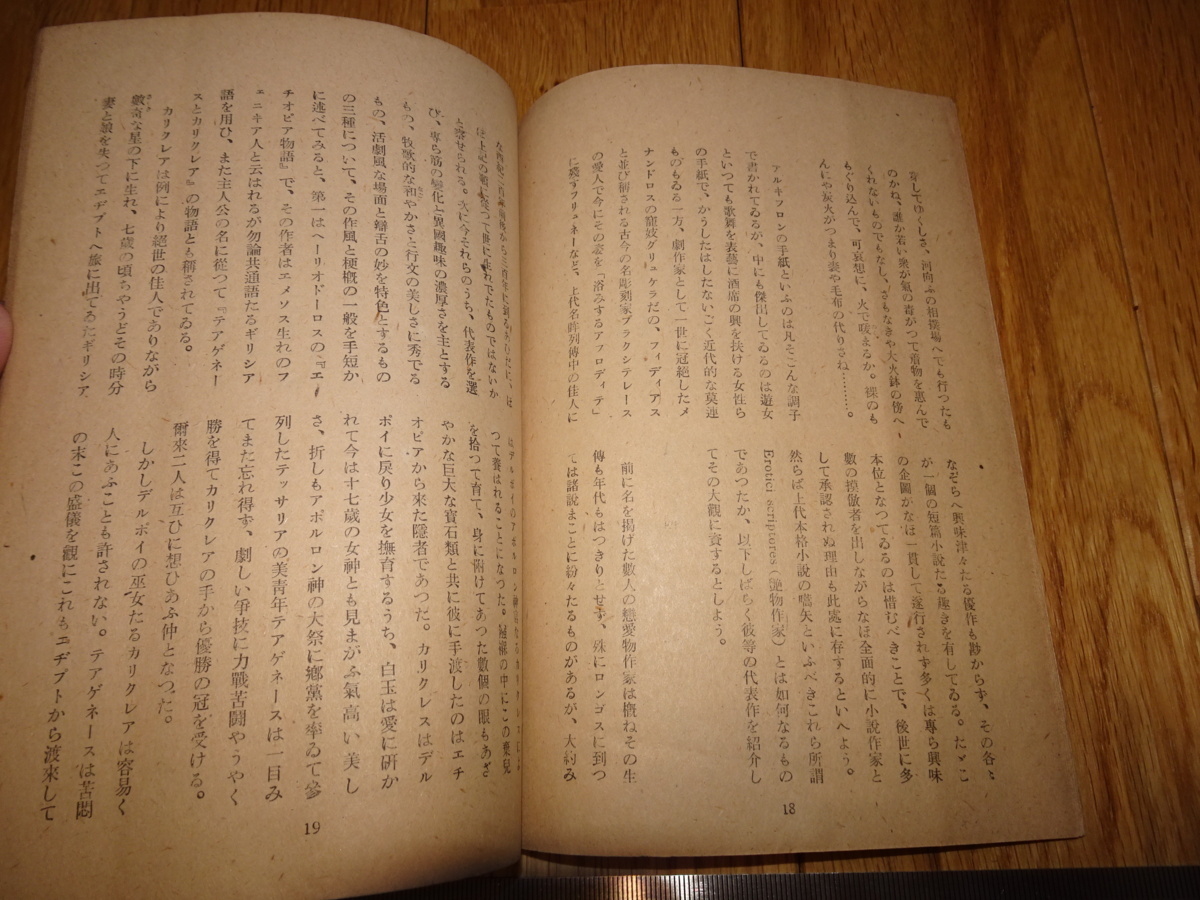 奇してゆくしさ、河向ふの相撲場へでも行つたも
のかね、誰か若い衆が氣の毒がつて着物を惠んで
くれないものでもなし、さもなきや大火鉢の傍へ
もぐり込んで、可哀想に、火で暖まるか。裸のも
んにや炭火がつまり妻や毛布の代りさね………。
アルキフロンの手紙といふのは凡そこんな調子
で書かれてゐるが、中にも傑出してゐるのは遊女
といつても歌舞を表藝に酒席の興を扶ける女性ら
の手紙で、かうしたはしたないごく近代的な莫連
ものもゐる一方、劇作家として一世に冠絶したメ
ナンドロスの寵妓グリュケラだの、フィディアス
と並び稱される古今の名彫刻家プラクシテレース
の愛人で今にその姿を「浴みするアフロディテ」
に殘すフリュネーなど、上代名眸列傳中の佳人に
なぞらへ興味津々たる優作も尠からず、その各〻
が一個の短篇小說たる趣きを有してゐる。たゞこ
の企圖がなほ一貫して遂行されず多くは專ら興味
本位となつてゐるのは惜むべきことで、後世に多
數の摸倣者を出しながらなほ全面的に小說作家と
して承認されぬ理由も此處に存するといへよう。
然らば上代本格小說の嚆矢といふべきこれら所謂
Erotici scriptores（艷物作家）とは如何なるもの
であつたか、以下しばらく彼等の代表作を紹介し
てその大觀に資するとしよう。
前に名を揭げた數人の戀愛物作家は槪ねその生
傳も年代もはつきりとせず、殊にロンゴスに到つ
ては諸說まことに紛々たるものがあるが、大約み
18
は上記の順に從つて世に生れでたものではないか
と察せられる。次に今それらのうち、代表作を選
び、專ら筋の變化と異國趣味の濃厚さを主とする
もの、牧歌的な和やかさと行文の美しさに秀でる
もの、活劇風な場面と辯舌の妙を特色とするもの
の三種について、その作風と梗槪の一般を手短か
に述べてみると、第一はヘーリオドーロスの『エ
チオピア物語』で、その作者はエメソス生れのフ
ェニキア人と云はれるが勿論共通語たるギリシア
語を用ひ、また主人公の名に從つて『テアゲネー
スとカリクレア』の物語とも稱されてゐる。
カリクレアは例により絕世の佳人でありながら
數奇な星の下に生れ、七歲の頃ちやうどその時分
妻と娘を失つてエヂプトへ旅に出てゐたギリシア
つて養はれることになつた。
を拾つて育て、身に附けてあつた數個の眼もあざ
やかな巨大な寶石類と共に彼に手渡したのはエチ
オピアから來た隱者であつた。カリクレスはデル
ポイに戾り少女を撫育するうち、白玉は愛に硏か
れて今は十七歲の女神とも見まがふ氣高い美し
さ、折しもアポルン神の大祭に鄕黨を率ゐて參
列したテッサリアの美靑年テアゲネースは一目み
てまた忘れ得ず、劇しい爭技に力戰苦鬪やうやく
勝を得てカリクレアの手から優勝の冠を受ける。
爾來二人は互ひに想ひあふ仲となつた。
しかしデルポイの巫女たるカリクレアは容易く
人にあふことも許されない。テアゲネースは苦悶
の末この盛儀を觀にこれもエヂプトから渡來して
19